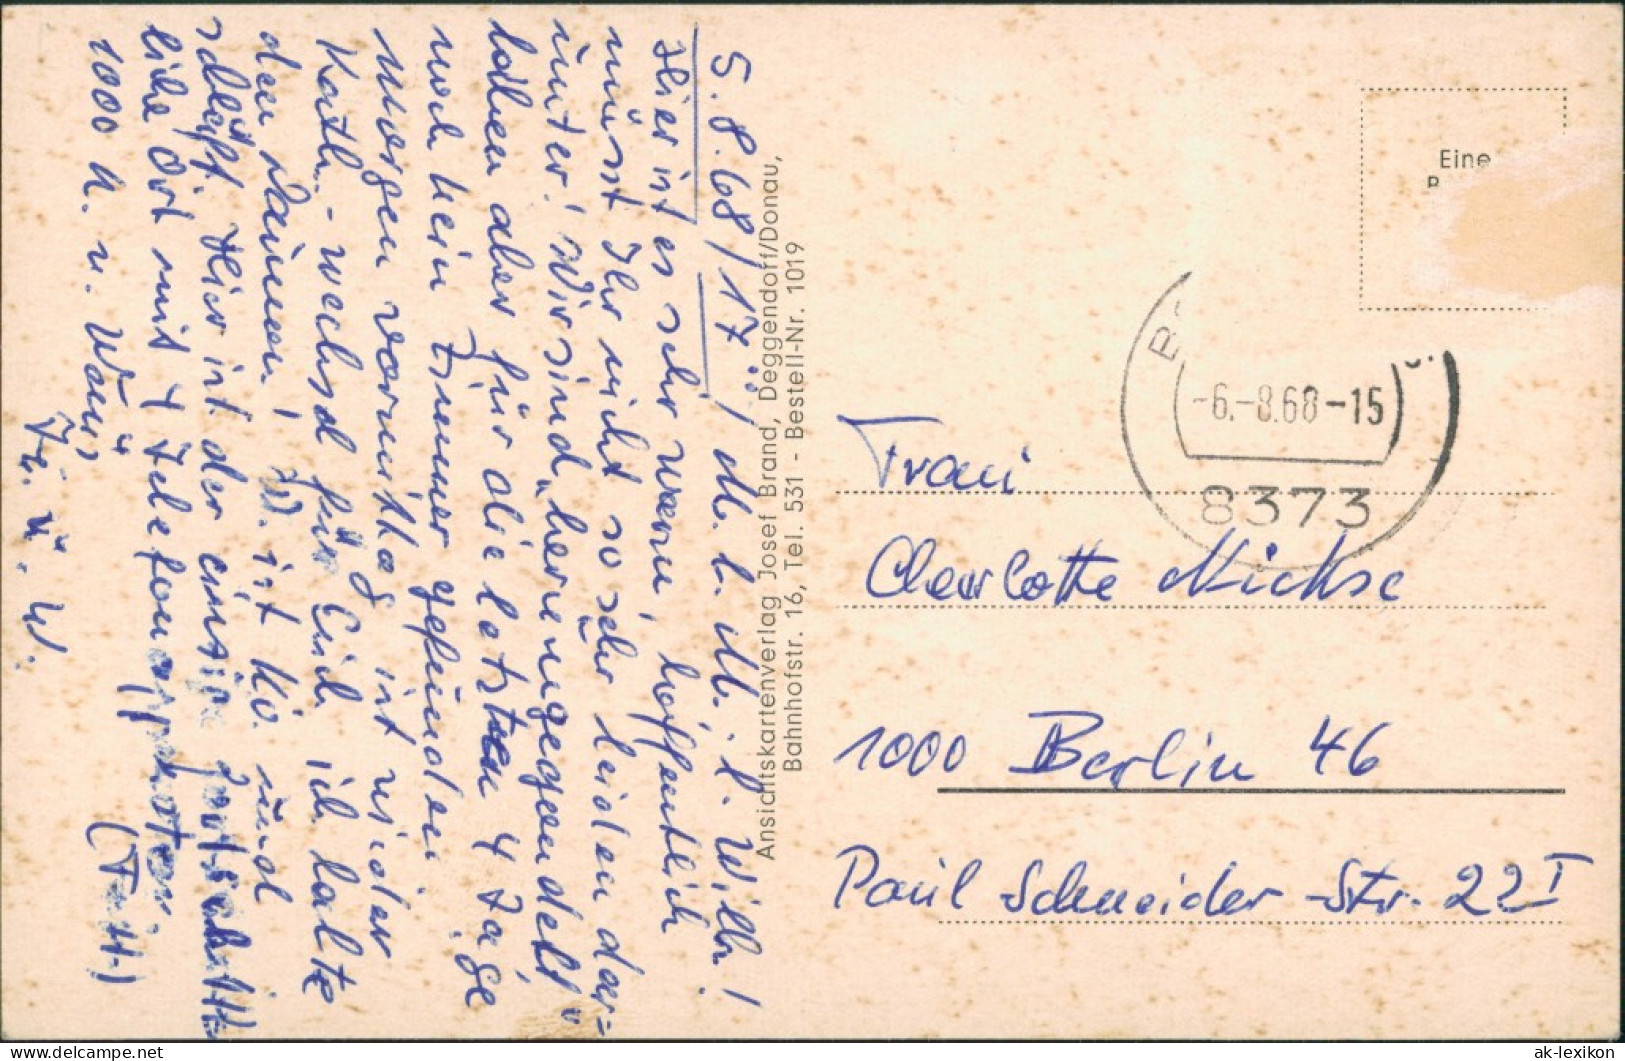 5.8.68/17ᵘ/ M. l. M. l. Willi!
Hier ist es sehr warm, hoffentlich
müsst Ihr nicht so sehr leiden dar-
unter! Wir sind „herumgegondelt“,
haben aber für die letzten 4 Tage
noch kein Zimmer gefunden.
Morgen vormittag ist wieder
Kath.-wechsel für Euch, ich halte
den Daumen! W. ist kö. und
schläft. Hier ist der einzige fortschritt-
liche Ort mit 4 Telefonapparaten.
1000 h. u. (Toll!)
u. W.
Ansichtskartenverlag Josef Brand, Deggendorf/Donau,
Bahnhofstr. 16, Tel. 531 - Bestell-Nr. 1019
Eine
-6.-8.68-15
8373
Frau
Charlotte Nickse
1000 Berlin 46
Paul Schneider-Str. 22 I
ak-lexikon
delcampe.net